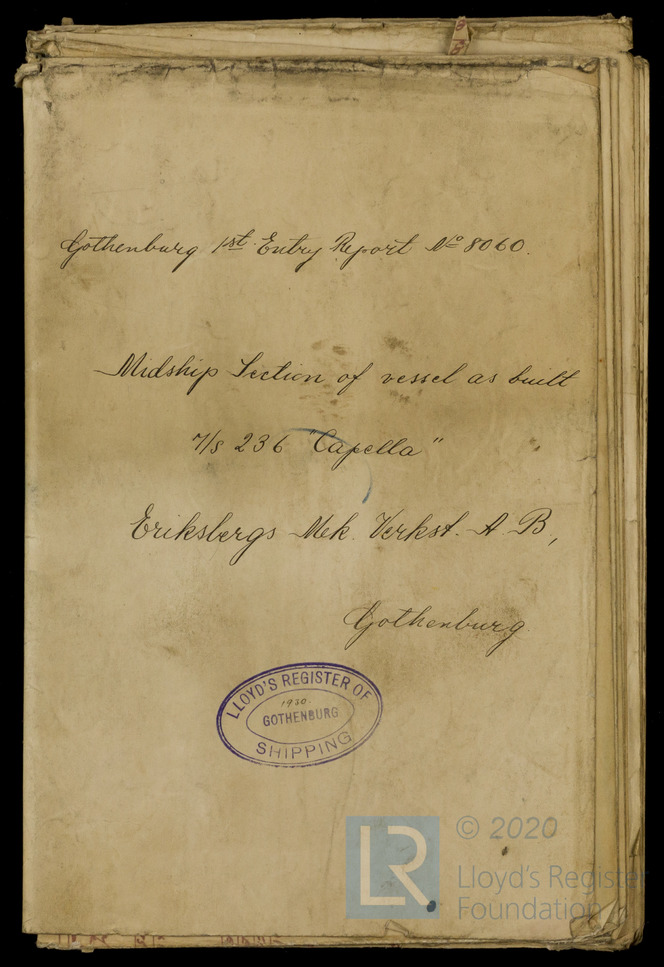 Gothenburg 1st Entry Report No 8060.
Midship Section of vessel as built
Y/s 236 "Capella"
Eriksbergs Mek. Verkst. A B,
Gothenburg
LLOYD'S REGISTER OF
1930.
GOTHENBURG
SHIPPING
LR
© 2020
Lloyd's Register
Foundation